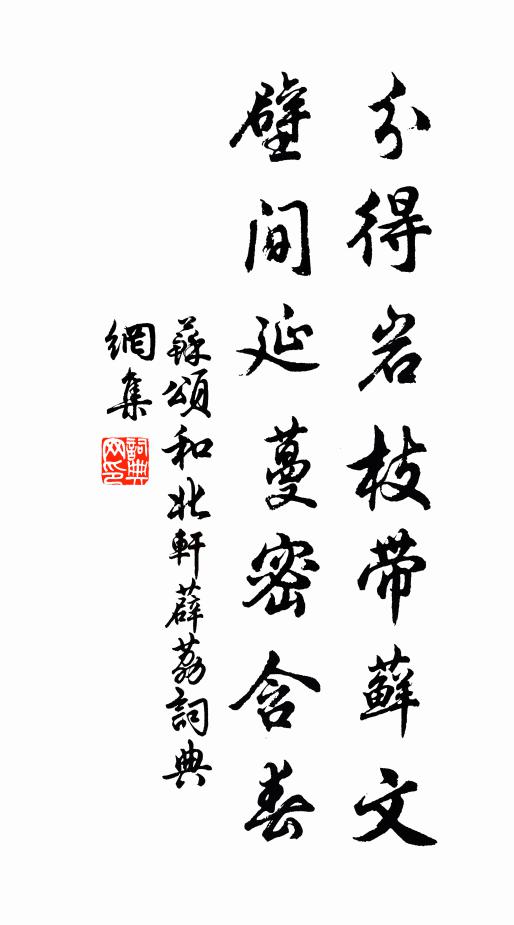 分得岩枝带蘚文
壁间延蔓密含春
蘇頌和北軒薜荔詞典
網集
詞典
网印